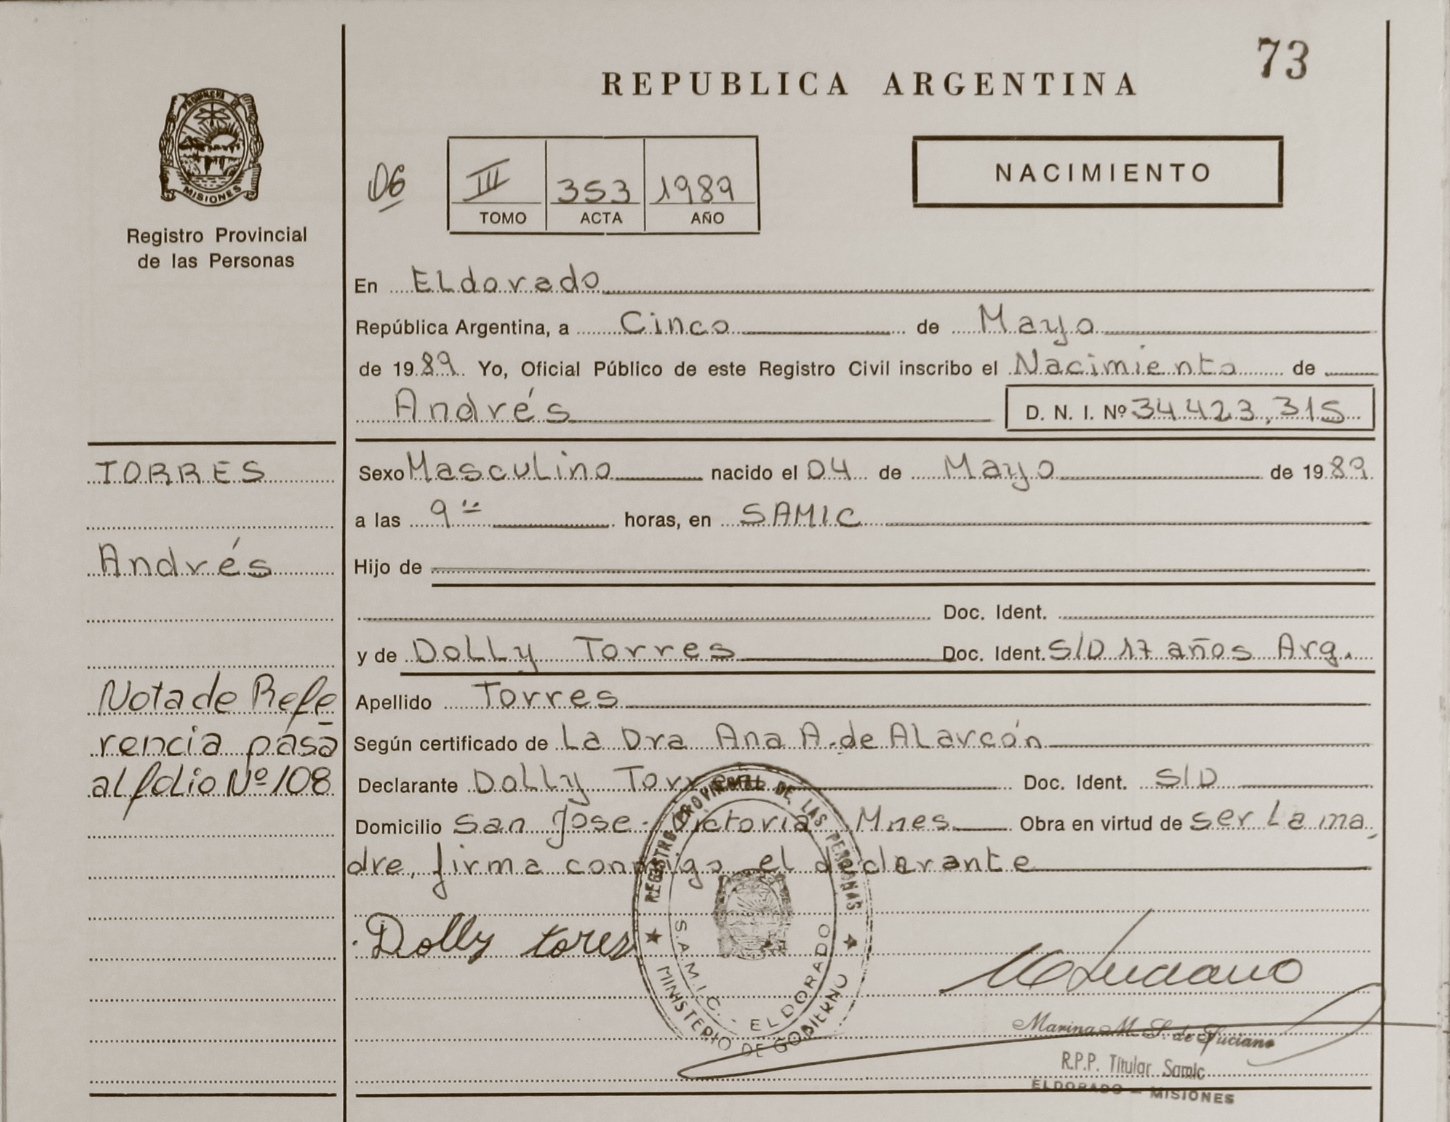 73
REPUBLICA ARGENTINA
PROVINCIA DE
MISIONES
Registro Provincial
de las Personas
06
III 353 1989
TOMO ACTA AÑO
NACIMIENTO
En Eldorado
República Argentina, a Cinco de Mayo
de 1989 Yo, Oficial Público de este Registro Civil inscribo el Nacimiento de
Andrés D. N. I. Nº 34.423,315
TORRES
Andrés
Nota de Refe
rencia pasa
al folio Nº 108
Sexo Masculino nacido el 04 de Mayo de 1989
a las 9 horas, en SAMIC
Hijo de
Doc. Ident.
y de Dolly Torres Doc. Ident. S/D 17 años Arg.
Apellido Torres
Según certificado de La Dra Ana A. de Alarcón
Declarante Dolly Torres Doc. Ident. S/D
Domicilio San Jose - Victoria Mnes Obra en virtud de ser La ma
dre, firma conmigo el declarante
Dolly tores
REGISTRO PROVINCIAL DE LAS PERSONAS
S.A.M.I.C. - ELDORADO
MINISTERIO DE GOBIERNO
Luciano
Marina M. S. de Luciano
R.P.P. Titular Samic
ELDORADO - MISIONES